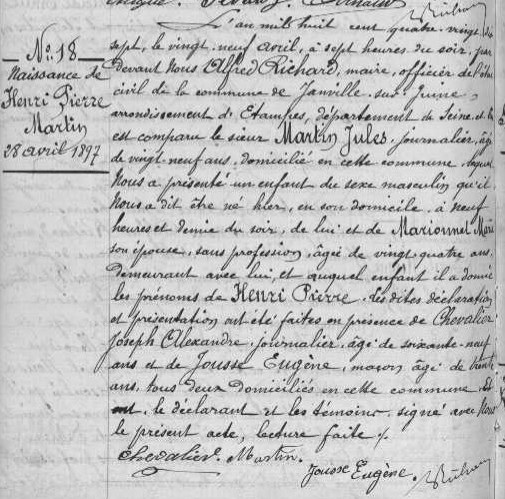 No. 18
Naissance de
Henri Pierre
Martin
28 avril 1897
L'an mil huit cent quatre-vingt-dix
sept, le vingt-neuf avril, à sept heures du soir, par
devant Nous Alfred Richard, maire, officier de l'état
civil de la commune de Janville-sur-Juine,
arrondissement d'Etampes, département de Seine-et-
est comparu le sieur Martin Jules, journalier, âgé
de vingt-neuf ans, domicilié en cette commune, lequel
Nous a présenté un enfant du sexe masculin qu'il
Nous a dit être né hier, en son domicile, à neuf
heures et demie du soir, de lui et de Marionnet Marie
son épouse, sans profession, âgée de vingt-quatre ans,
demeurant avec lui, et auquel enfant il a donné
les prénoms de Henri Pierre. Les dites déclaration
et présentation ont été faites en présence de Chevalier
Joseph Alexandre, journalier, âgé de soixante-neuf
ans et de Jousse Eugène, maçon, âgé de trente
ans, tous deux domiciliés en cette commune
, le déclarant et les témoins, signé avec Nous
le présent acte, lecture faite ./.
Chevalier. Martin.
Jousse Eugène. Richard